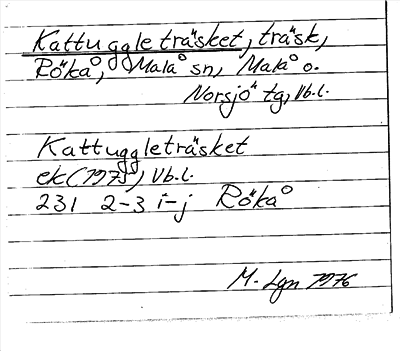 Kattuggleträsket, träsk,
Rökå, Malå sn, Malå o.
Norsjö tg, Vb.l.
Kattuggleträsket
ek (1975) Vb.l.
231 2-3 i-j Rökå
M. Lgn 1976